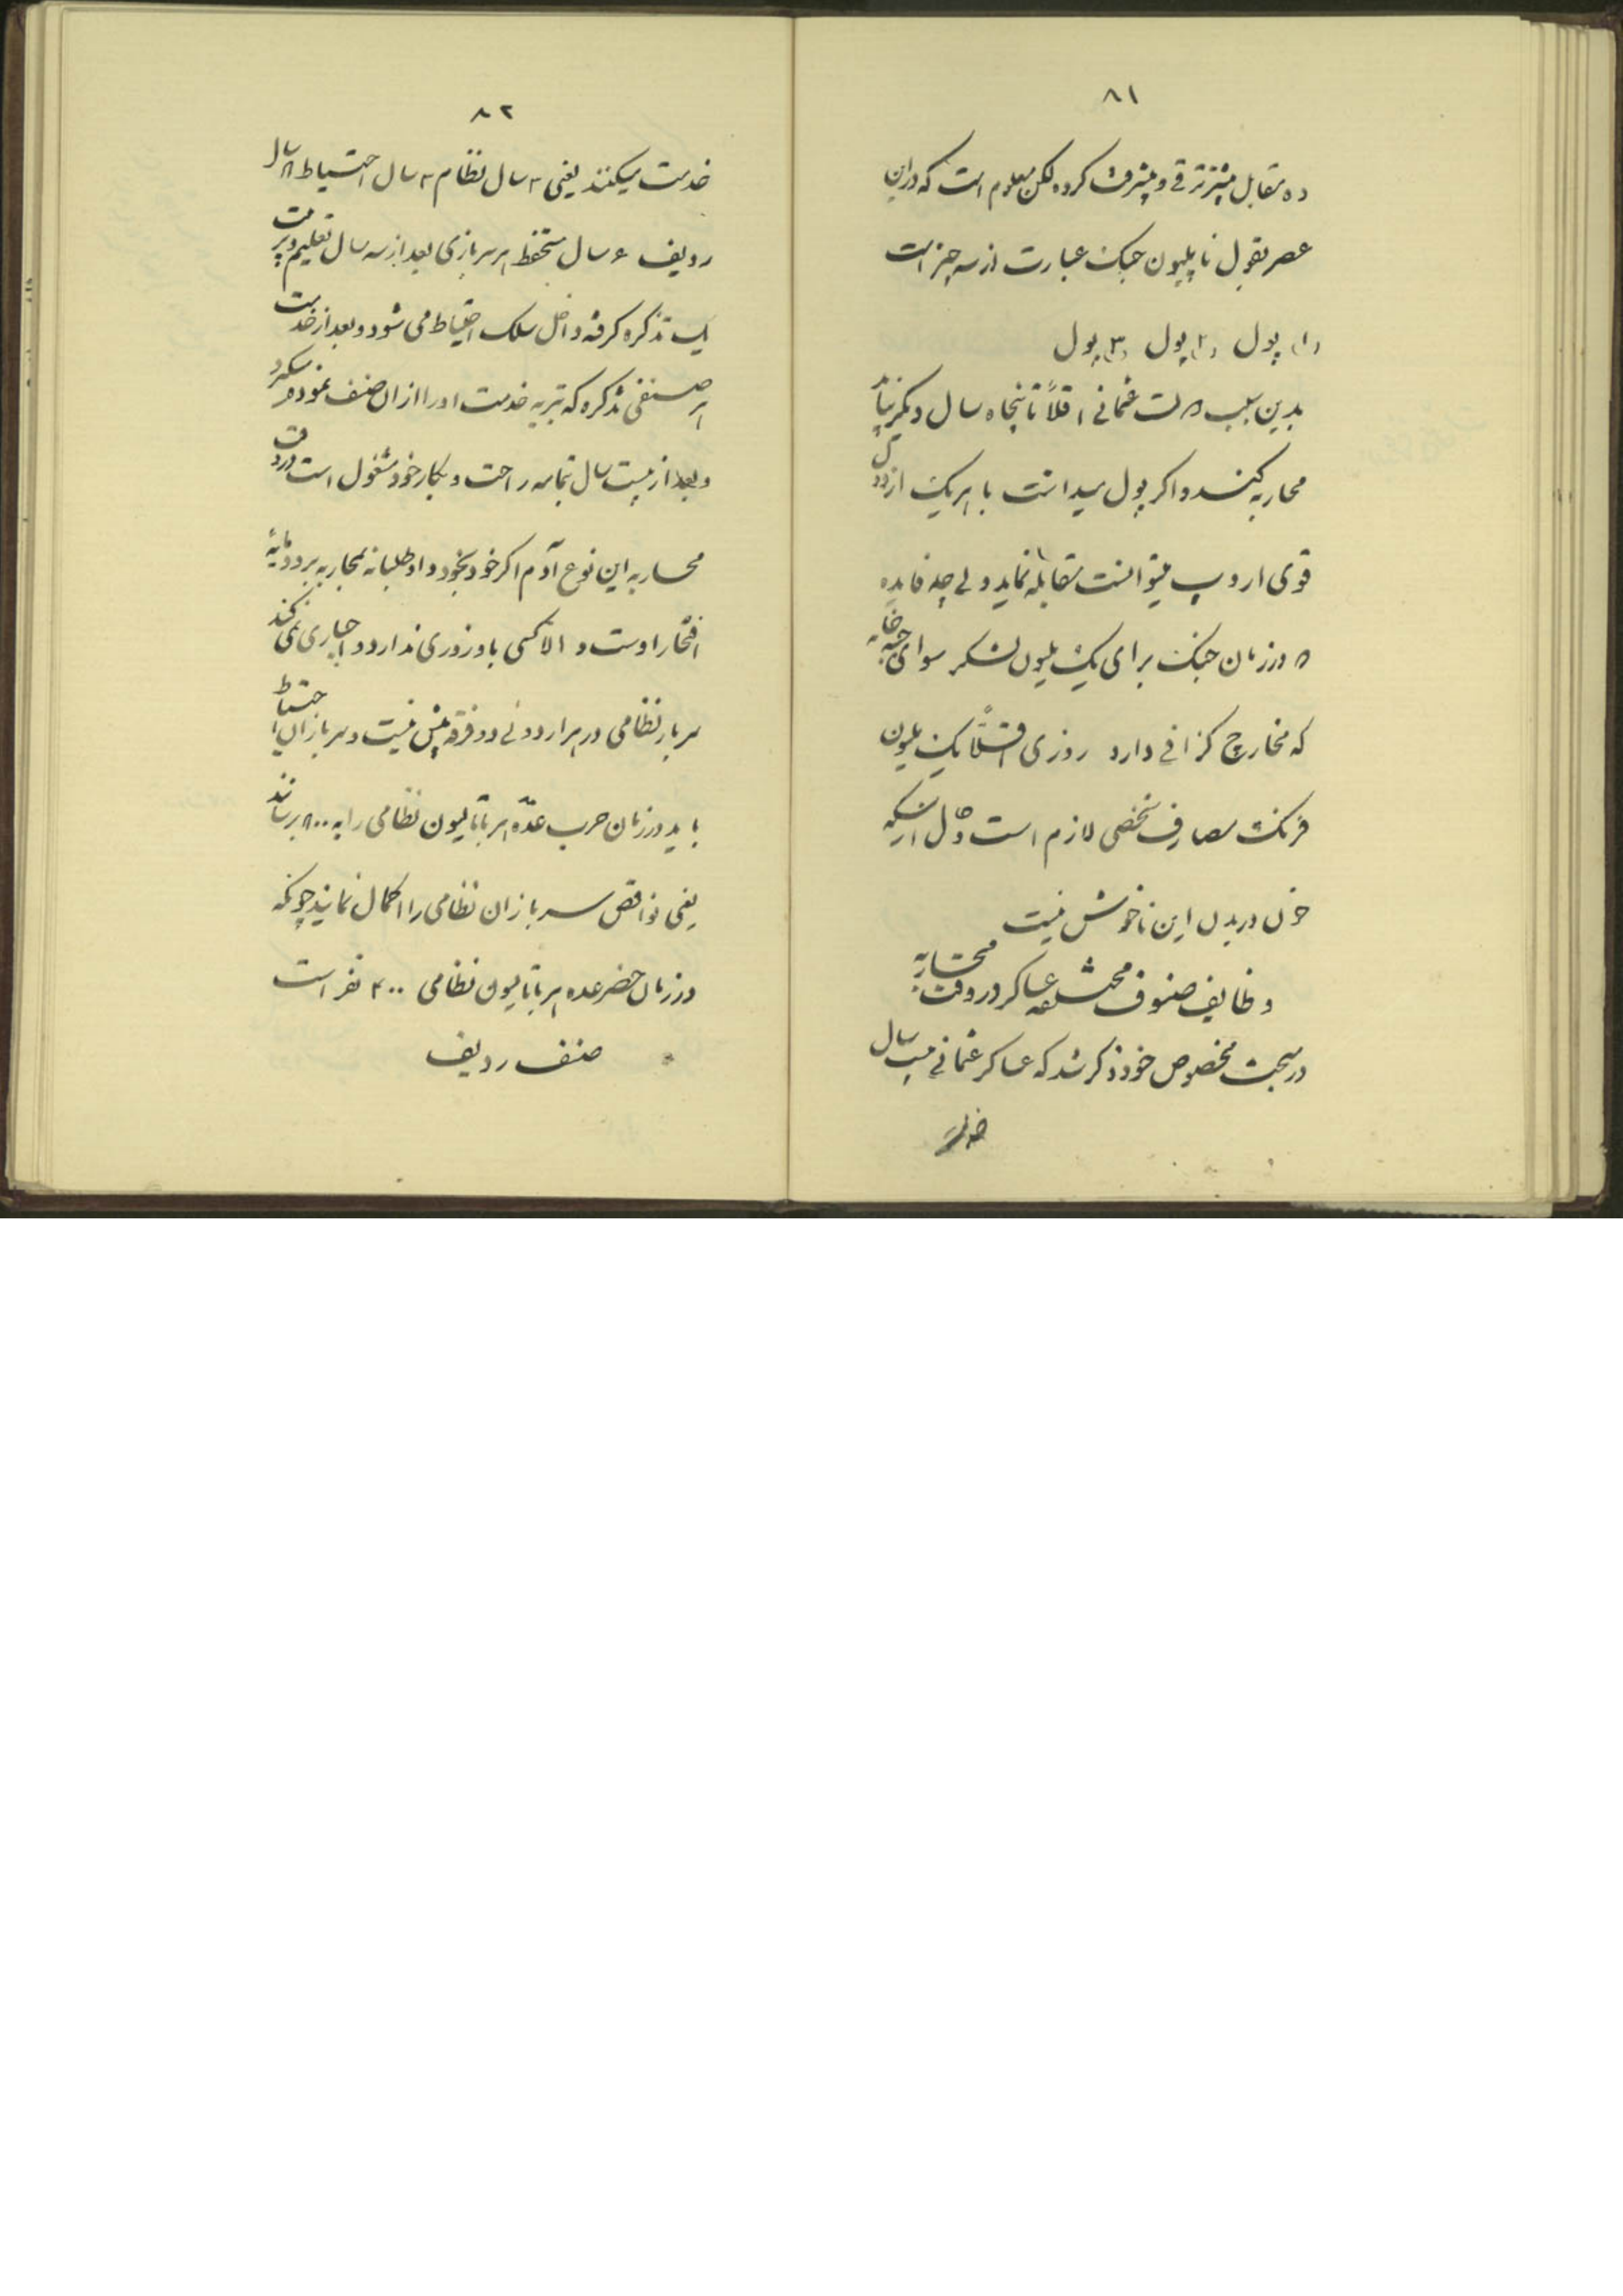 ۸۱
ده مقابل بیشتر ترقی و پیشرفت کرده لکن معلوم است که در این
عصر بقول ناپلیون جنک عبارت از سه چیز است
(۱) پول (۲) پول (۳) پول
بدین سبب دولت عثمانی اقلاً تا پنجاه سال دیکر نباید
محاربه کند و اکر پول میداشت با هر یک از دول
قوی اروپ میتوانست مقابله نماید ولی چه فایده
که در زمان جنک برای یک ملیون لشکر سوای جبه خانه
که مخارج کزافی دارد روزی اقلاً یک ملیون
فرنک مصارف شخصی لازم است و حال آنکه
خون در بدن این ناخوش نیست
وظایف صنوف مختلفه عساکر در وقت محاربه
در مبحث مخصوص خود ذکر شد که عساکر عثمانی بیست سال
خدمت
۸۲
خدمت میکنند یعنی ۳ سال نظام ۳ سال احتیاط ۸ سال
ردیف ۶ سال مستحفظ هر سربازی بعد از سه سال تعلیم و تربیت
یک تذکره کرفته داخل سلک احتیاط می شود و بعد از خدمت
هر صنفی تذکره که تبریه خدمت او را از آن صنف نموده میگیرد
و بعد از بیست سال تمامه راحت و بکار خود مشغول است در وقت
محاربه این نوع آدم اکر خود بخود داوطلبانه بمحاربه برود مایهٔ
افتخار اوست و الا کسی باو زوری ندارد و اجباری نمی کند
سرباز نظامی در هر اردوئی دو فرقه بیش نیست و سربازان احتیاط
باید در زمان حرب عدّه هر باتالیون نظامی را به ۸۰۰ برسانند
یعنی نواقص سربازان نظامی را اکمال نمایند چونکه
در زمان حضر عده هر باتالیون نظامی ۴۰۰ نفر است
صنف ردیف